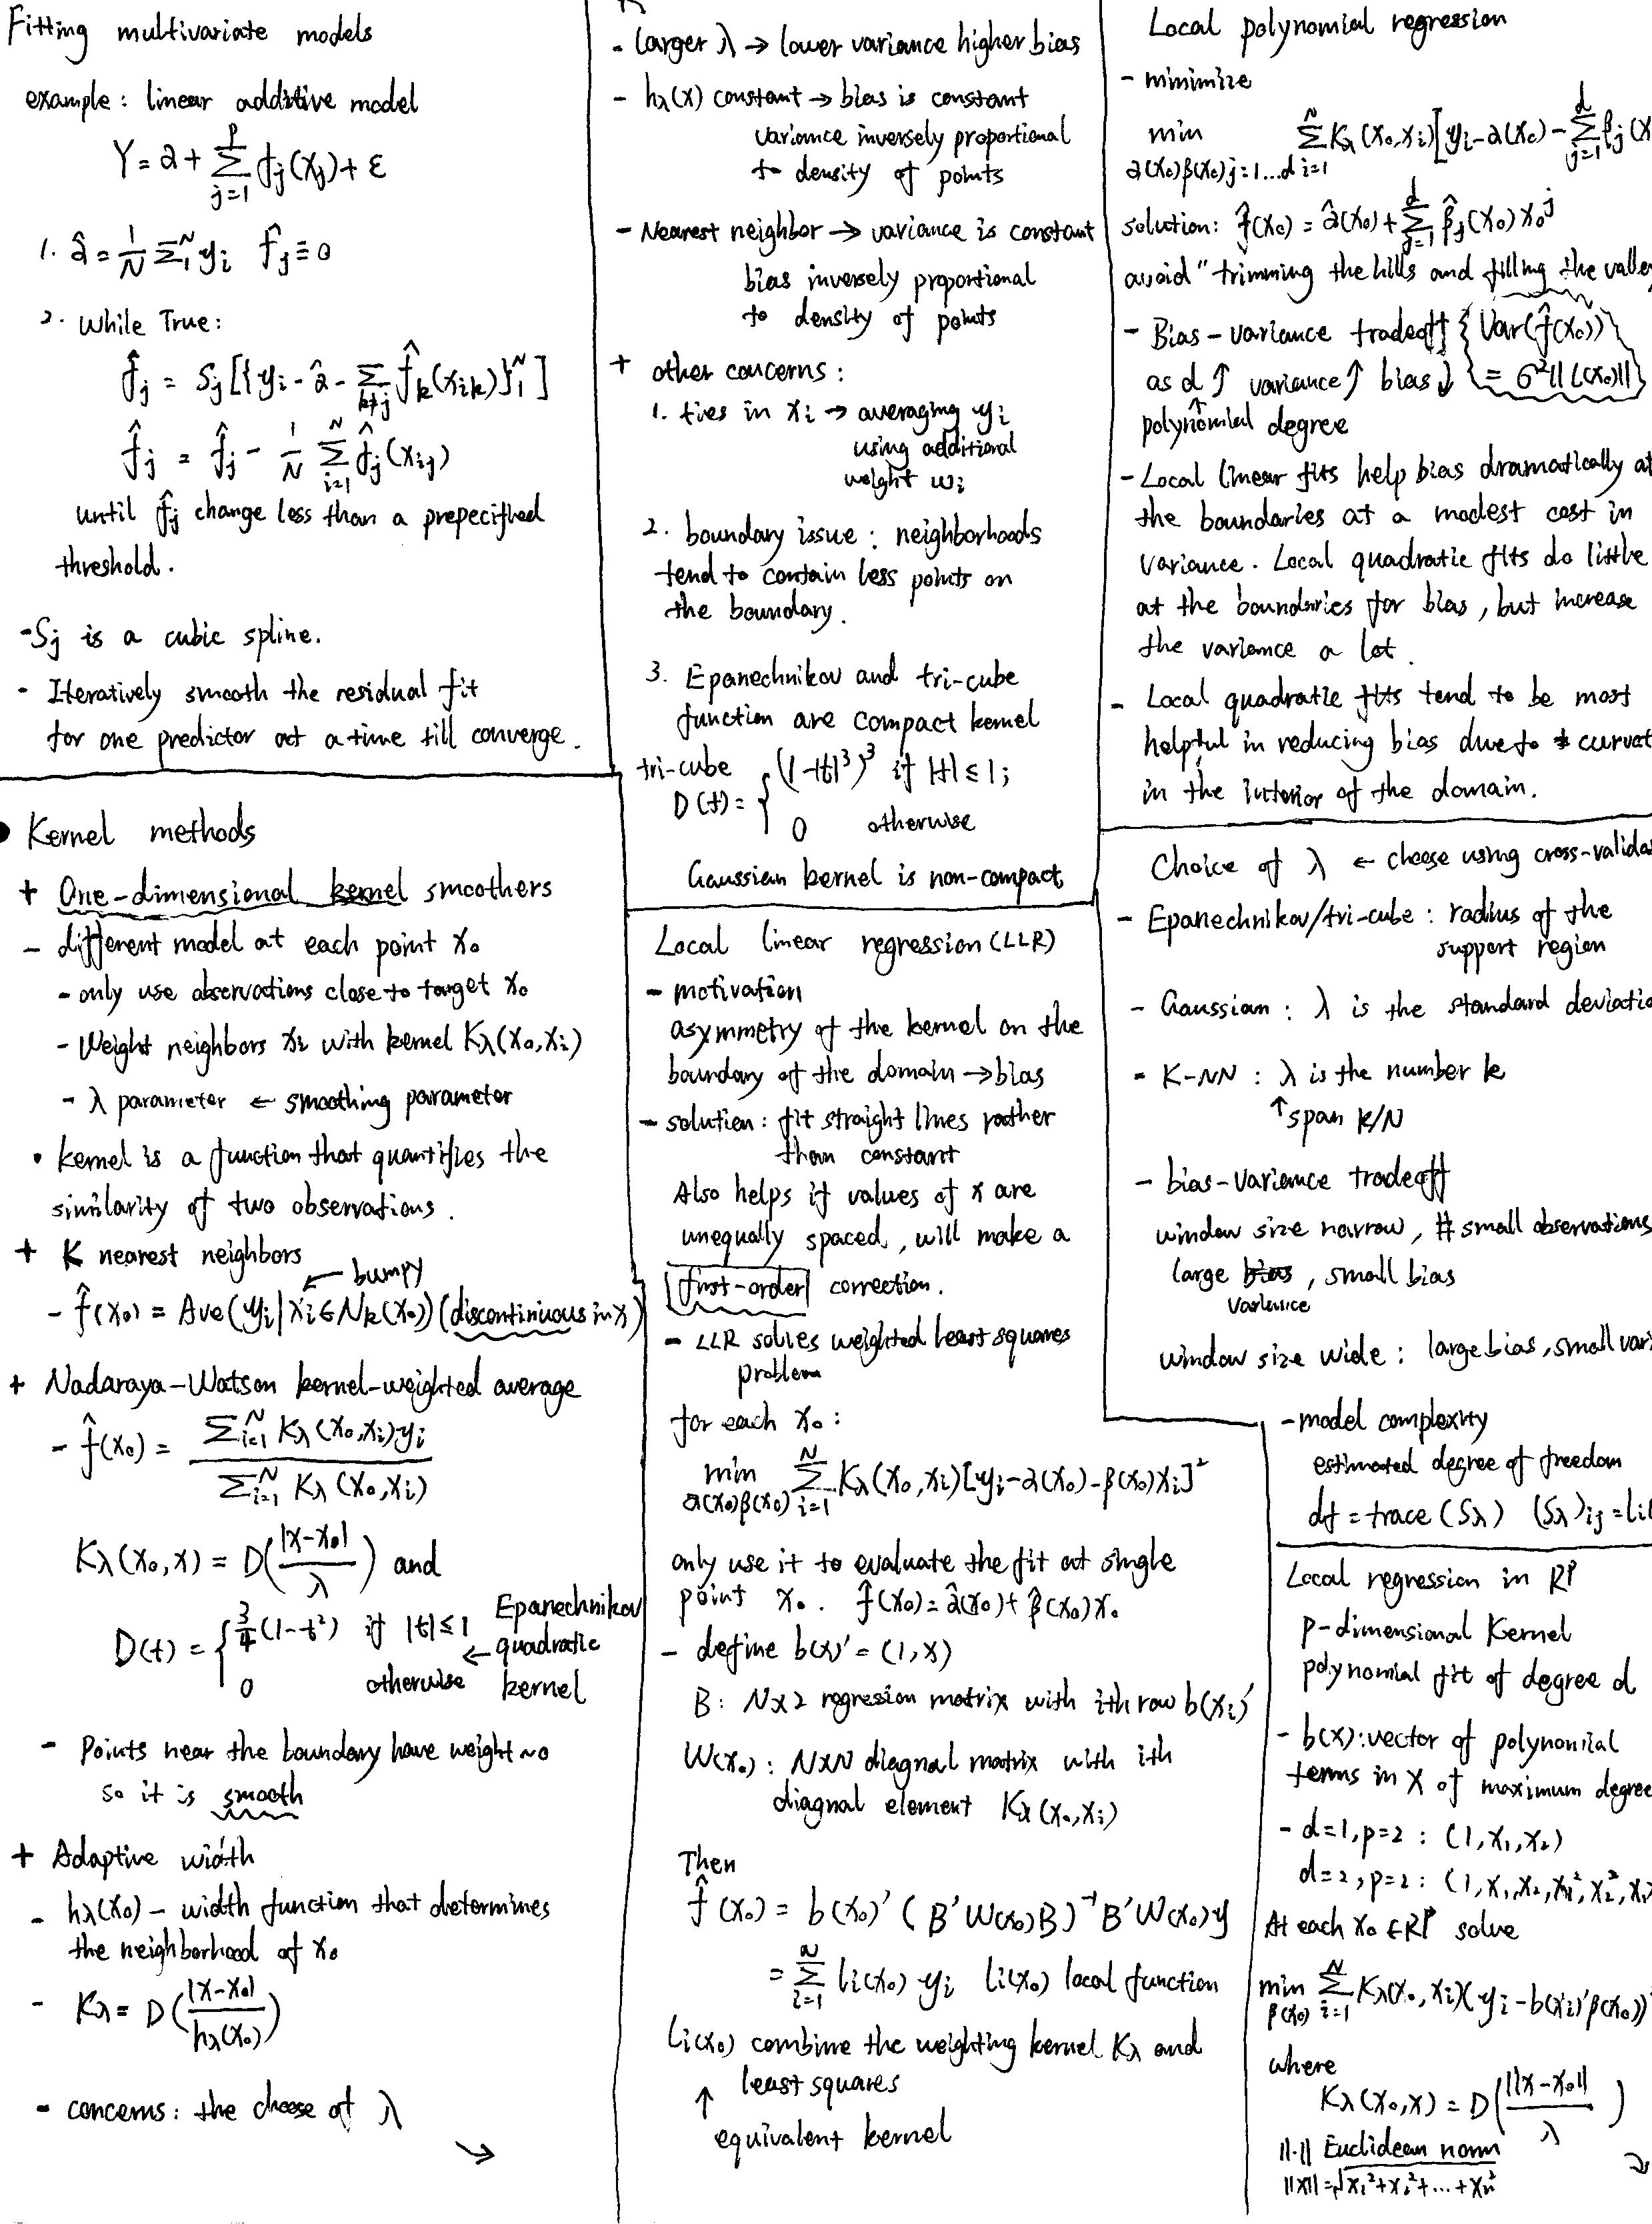 Fitting multivariate models
example: linear additive model
Y = α + Σ_{j=1}^{p} f_j(X_j) + ε
1. α̂ = 1/N Σ_1^N y_i   f̂_j ≡ 0
2. While True:
f̂_j = S_j[{y_i - α̂ - Σ_{k≠j} f̂_k(x_{ik})}_1^N]
f̂_j = f̂_j - 1/N Σ_{i=1}^N f̂_j(x_{ij})
until f̂_j change less than a prepecified
threshold.
- S_j is a cubic spline.
- Iteratively smooth the residual fit
for one predictor at a time till converge.
• Kernel methods
+ One-dimensional kernel smoothers
- different model at each point x_0
- only use observations close to target x_0
- Weight neighbors x_i with kernel K_λ(x_0, x_i)
- λ parameter ← smoothing parameter
• kernel is a function that quantifies the
similarity of two observations.
+ K nearest neighbors
← bumpy
- f̂(x_0) = Ave(y_i | x_i ∈ N_k(x_0)) (discontinuous in x)
+ Nadaraya-Watson kernel-weighted average
- f̂(x_0) = Σ_{i=1}^N K_λ(x_0, x_i) y_i / Σ_{i=1}^N K_λ(x_0, x_i)
K_λ(x_0, x) = D(|x - x_0| / λ) and
D(t) = { 3/4 (1 - t²) if |t| ≤ 1
0 otherwise
← Epanechnikov
quadratic
kernel
- Points near the boundary have weight ~0
so it is smooth
+ Adaptive width
- h_λ(x_0) - width function that determines
the neighborhood of x_0
- K_λ = D(|x - x_0| / h_λ(x_0))
- concerns: the choose of λ
↘
- larger λ → lower variance higher bias
- h_λ(x) constant → bias is constant
variance inversely proportional
to density of points
- Nearest neighbor → variance is constant
bias inversely proportional
to density of points
+ other concerns:
1. ties in x_i → averaging y_i
using additional
weight w_i
2. boundary issue: neighborhoods
tend to contain less points on
the boundary.
3. Epanechnikov and tri-cube
function are compact kernel
tri-cube
D(t) = { (1-|t|³)³ if |t| ≤ 1;
0 otherwise
Gaussian kernel is non-compact
Local linear regression (LLR)
- motivation
asymmetry of the kernel on the
boundary of the domain → bias
- solution: fit straight lines rather
than constant
Also helps if values of x are
unequally spaced, will make a
first-order correction.
- LLR solves weighted least squares
problem
for each x_0:
min_{α(x_0) β(x_0)} Σ_{i=1}^N K_λ(x_0, x_i)[y_i - α(x_0) - β(x_0)x_i]²
only use it to evaluate the fit at single
point x_0. f̂(x_0) = α̂(x_0) + β̂(x_0)x_0
- define b(x)' = (1, x)
B: N×2 regression matrix with ith row b(x_i)'
W(x_0): N×N diagnal matrix with ith
diagnal element K_λ(x_0, x_i)
Then
f̂(x_0) = b(x_0)' (B'W(x_0)B)^{-1} B'W(x_0)y
= Σ_{i=1}^N l_i(x_0) y_i   l_i(x_0) local function
l_i(x_0) combine the weighting kernel K_λ and
↑ least squares
equivalent kernel
Local polynomial regression
- minimize
min_{α(x_0) β(x_0) j=1...d} Σ_{i=1}^N K_λ(x_0, x_i)[y_i - α(x_0) - Σ_{j=1}^d β_j(x
solution: f̂(x_0) = α̂(x_0) + Σ_{j=1}^d β̂_j(x_0) x_0^j
avoid "trimming the hills and filling the valley
- Bias-variance tradeoff { Var(f̂(x_0))
as d ↑ variance ↑ bias ↓ = σ²||l(x_0)|| }
↑
polynomial degree
- Local linear fits help bias dramatically at
the boundaries at a modest cost in
variance. Local quadratic fits do little
at the boundaries for bias, but increase
the variance a lot.
- Local quadratic fits tend to be most
helpful in reducing bias due to curvat
in the interior of the domain.
Choice of λ ← choose using cross-valida
- Epanechnikov/tri-cube: radius of the
support region
- Gaussian: λ is the standard deviatio
- K-NN: λ is the number k
↑ span k/N
- bias-variance tradeoff
window size narrow, # small observations,
large variance, small bias
window size wide: large bias, small var
- model complexity
estimated degree of freedom
df = trace(S_λ)   (S_λ)_{ij} = l_i(
Local regression in ℝ^p
p-dimensional Kernel
polynomial fit of degree d
- b(X): vector of polynomial
terms in X of maximum degree
- d=1, p=2: (1, x_1, x_2)
d=2, p=2: (1, x_1, x_2, x_1², x_2², x_1
At each x_0 ∈ ℝ^p solve
min_{β(x_0)} Σ_{i=1}^N K_λ(x_0, x_i)(y_i - b(x_i)'β(x_0))²
where
K_λ(x_0, x) = D(||x - x_0|| / λ)
||·|| Euclidean norm
||x|| = √(x_1² + x_2² + ... + x_n²)
↘